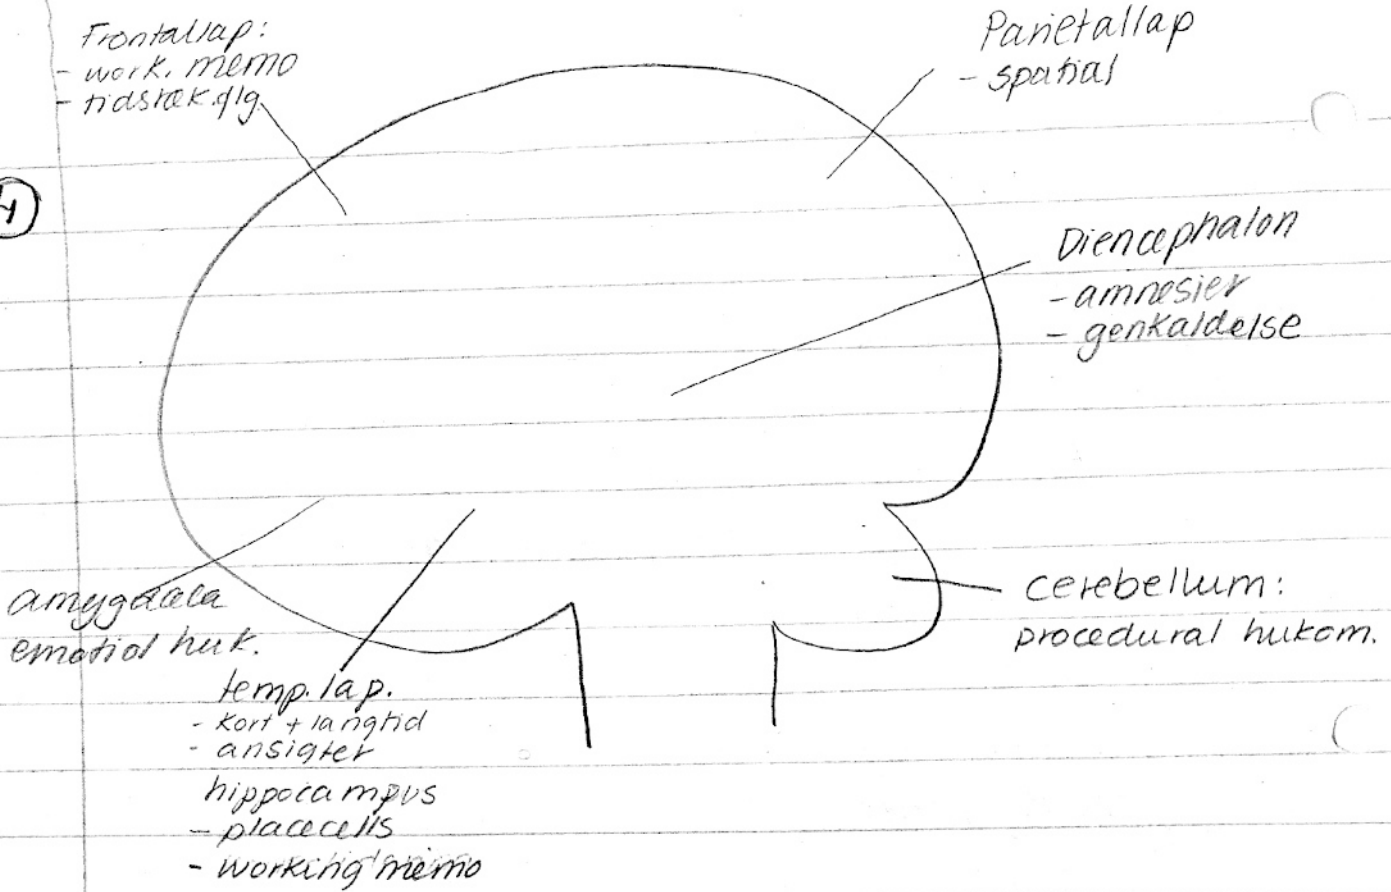 Frontallap:
- work. memo
- tidsræk.flg.
Parietallap
- spatial
Diencephalon
- amnesier
- genkaldelse
amygdala
emotiol huk.
cerebellum:
procedural hukom.
temp. lap.
- kort + langtid
- ansigter
hippocampus
- placecells
- working memo